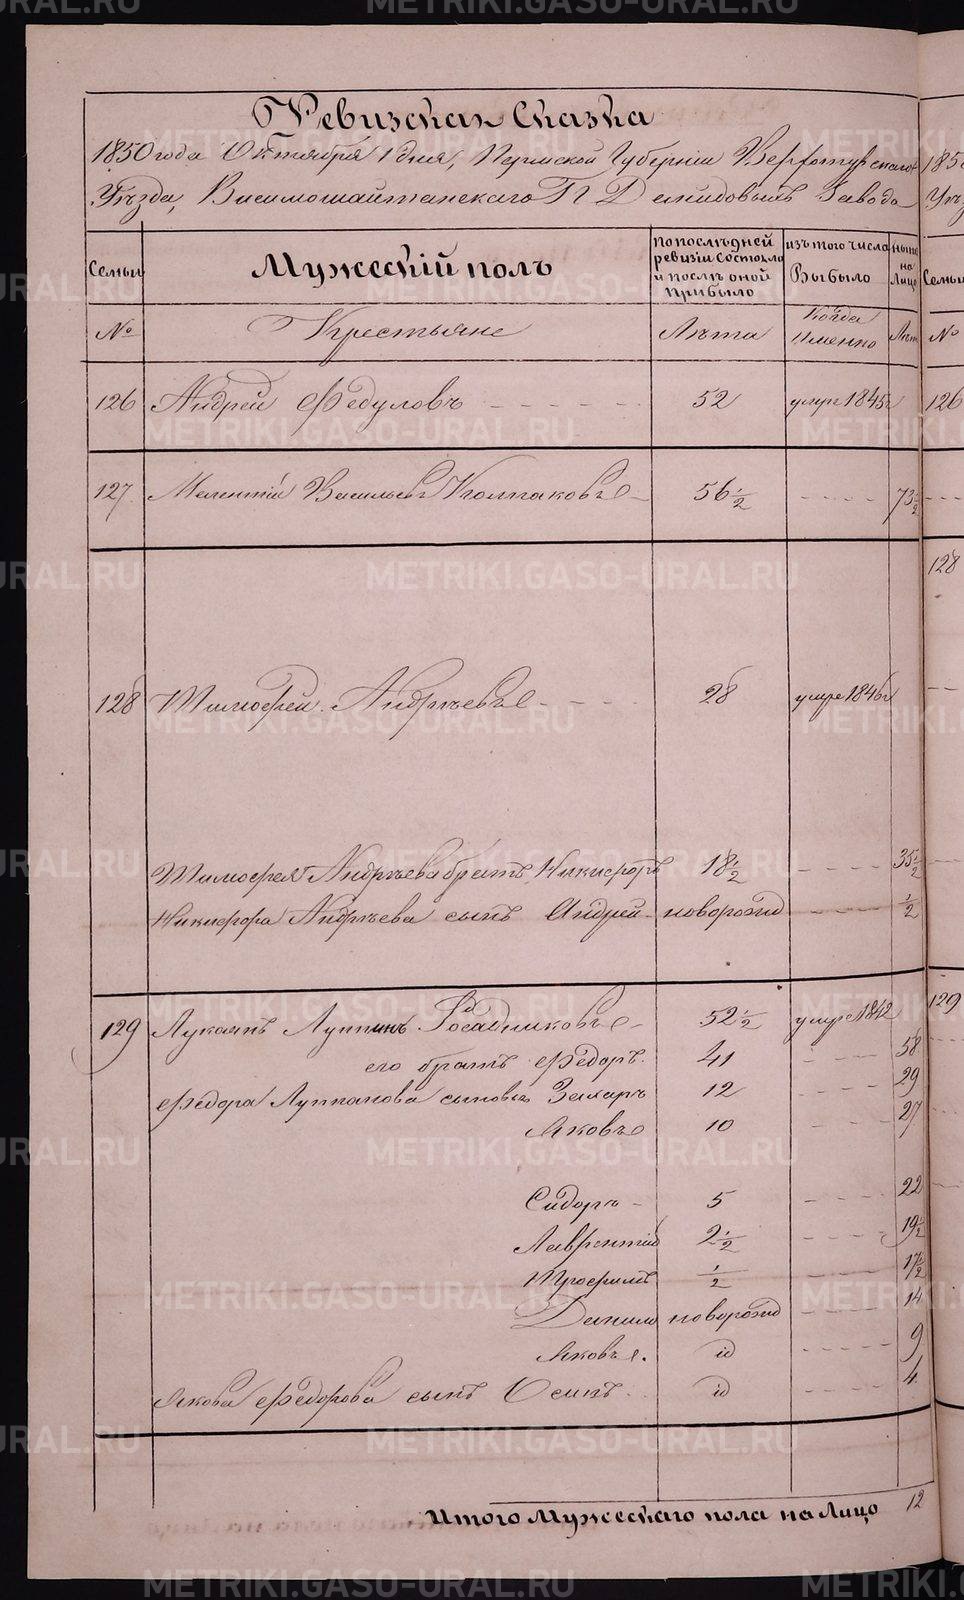 Ревизская Сказка
1850 года Октября 1 дня, Пермской Губернiи Верхотурскаго
Уѣзда, Висимошайтанскаго П Демидовыхъ Завода
Семьи
Мужескiй полъ
По послѣдней ревизiи Состояло и послѣ оной прибыло
изъ того числа Выбыло
ныне на Лицо
№ Крестьяне Лѣта Когда Именно Лѣт
126 Андрей Федуловъ 52 умре 1845г
127 Мелентiй Васильевъ Колпаковъ 56 1/2 73 1/2
128 Тимофей Андрѣевъ 28 умре 1846г
Тимофея Андрѣева братъ Никифоръ 18 1/2 35 1/2
Никифора Андрѣева сынъ Андрей новорожд 1/2
129 Лукоянъ Луппинъ Росадниковъ 52 1/2 умре 1842
его братъ Федоръ 41 58
Федора Луппанова сыновья Захаръ 12 29
Яковъ 10 27
Сидоръ 5 22
Лаврентiй 2 1/2 19 1/2
Трофимъ 1/2 17 1/2
Данило новорожд 14
Яковъ id 9
Якова Федорова сынъ Осипъ id 4
Итого Мужескаго пола на Лицо 12
1850
Уѣз
Семьи
№
126
128
129
METRIKI.GASO-URAL.RU